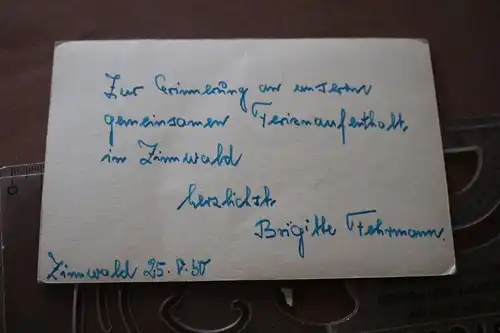 Zur Erinnerung an unseren
gemeinsamen Ferienaufenthalt
in Zinnwald
herzlichst
Brigitte Fehrmann.
Zinnwald 25.